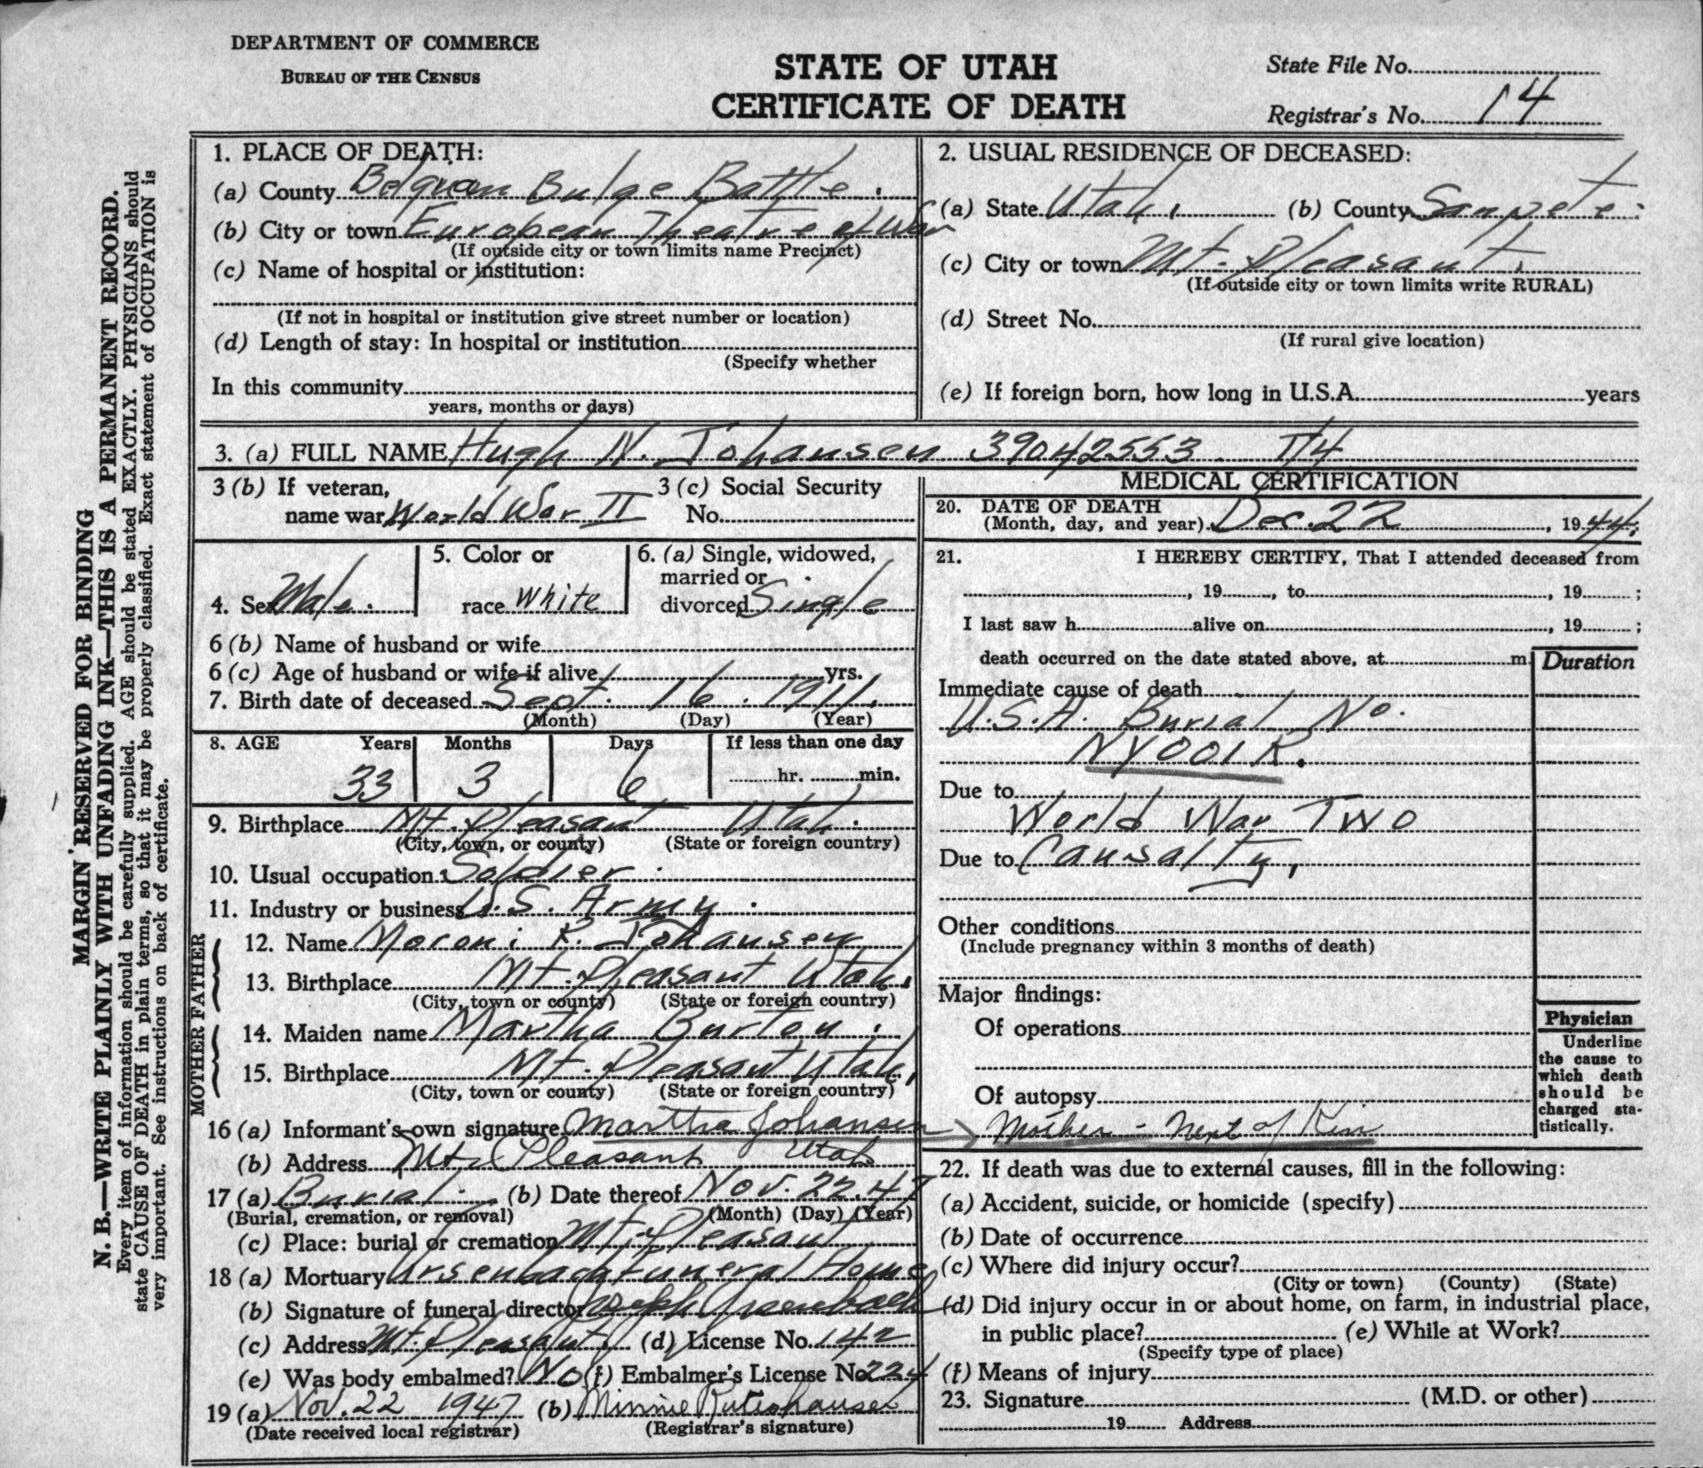 DEPARTMENT OF COMMERCE
BUREAU OF THE CENSUS
STATE OF UTAH
CERTIFICATE OF DEATH
State File No.
Registrar's No. 14
MARGIN RESERVED FOR BINDING
N. B.—WRITE PLAINLY WITH UNFADING INK—THIS IS A PERMANENT RECORD.
Every item of information should be carefully supplied. AGE should be stated EXACTLY. PHYSICIANS should
state CAUSE OF DEATH in plain terms, so that it may be properly classified. Exact statement of OCCUPATION is
very important. See instructions on back of certificate.
1. PLACE OF DEATH:
(a) County Belgian Bulge Battle.
(b) City or town European Theatre of War
(If outside city or town limits name Precinct)
(c) Name of hospital or institution:
(If not in hospital or institution give street number or location)
(d) Length of stay: In hospital or institution
(Specify whether
In this community
years, months or days)
2. USUAL RESIDENCE OF DECEASED:
(a) State Utah, (b) County Sanpete.
(c) City or town Mt. Pleasant.
(If outside city or town limits write RURAL)
(d) Street No.
(If rural give location)
(e) If foreign born, how long in U.S.A. years
3. (a) FULL NAME Hugh N. Johansen 39042553 T/4
3 (b) If veteran,
name war World War II
3 (c) Social Security
No.
4. Sex Male.
5. Color or
race White
6. (a) Single, widowed,
married or
divorced Single
6 (b) Name of husband or wife
6 (c) Age of husband or wife if alive yrs.
7. Birth date of deceased Sept. 16 . 1911.
(Month) (Day) (Year)
8. AGE Years Months Days If less than one day
33 3 6 hr. min.
9. Birthplace Mt. Pleasant Utah.
(City, town, or county) (State or foreign country)
10. Usual occupation Soldier
11. Industry or business U.S. Army.
FATHER
12. Name Moroni R. Johansen
13. Birthplace Mt. Pleasant Utah.
(City, town or county) (State or foreign country)
MOTHER
14. Maiden name Martha Burton.
15. Birthplace Mt. Pleasant Utah.
(City, town or county) (State or foreign country)
16 (a) Informant's own signature Martha Johansen
(b) Address Mt. Pleasant Utah
17 (a) Burial. (b) Date thereof Nov. 22, 47
(Burial, cremation, or removal) (Month) (Day) (Year)
(c) Place: burial or cremation Mt. Pleasant
18 (a) Mortuary Ursenbach Funeral Home
(b) Signature of funeral director Joseph Ursenbach
(c) Address Mt. Pleasant, (d) License No. 142
(e) Was body embalmed? No (f) Embalmer's License No 224
19 (a) Nov. 22 1947 (b) Minnie
(Date received local registrar) (Registrar's signature)
MEDICAL CERTIFICATION
20. DATE OF DEATH
(Month, day, and year) Dec. 22, 1944.
21. I HEREBY CERTIFY, That I attended deceased from
, 19 , to , 19 ;
I last saw h alive on , 19 ;
death occurred on the date stated above, at m.
Duration
Immediate cause of death
U.S.A. Burial No.
NY001R.
Due to
World War Two
Due to Causalty.
Other conditions
(Include pregnancy within 3 months of death)
Major findings:
Of operations
Of autopsy
Physician
Underline
the cause to
which death
should be
charged sta-
tistically.
Mother - Next of Kin
22. If death was due to external causes, fill in the following:
(a) Accident, suicide, or homicide (specify)
(b) Date of occurrence
(c) Where did injury occur?
(City or town) (County) (State)
(d) Did injury occur in or about home, on farm, in industrial place,
in public place? (e) While at Work?
(Specify type of place)
(f) Means of injury
23. Signature (M.D. or other)
19 Address